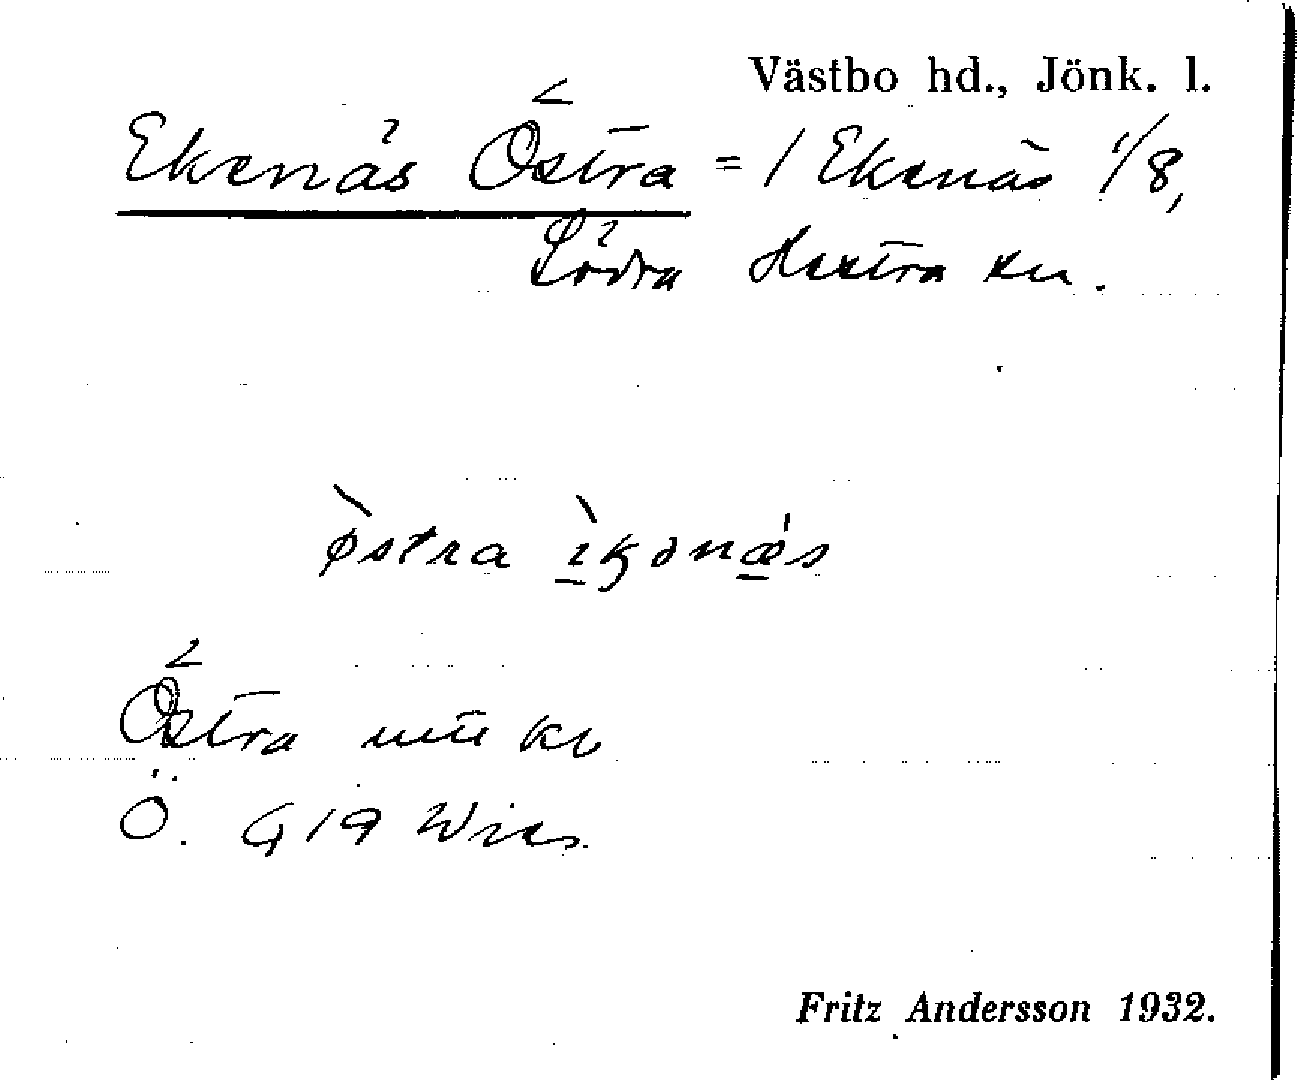 Västbo hd., Jönk. l.
Ekenäs Östra = 1 Ekenäs 1/8,
Södra Hestra sn.
östra ìkənæ̀s
Östra
Ö. G 19
Fritz Andersson 1932.